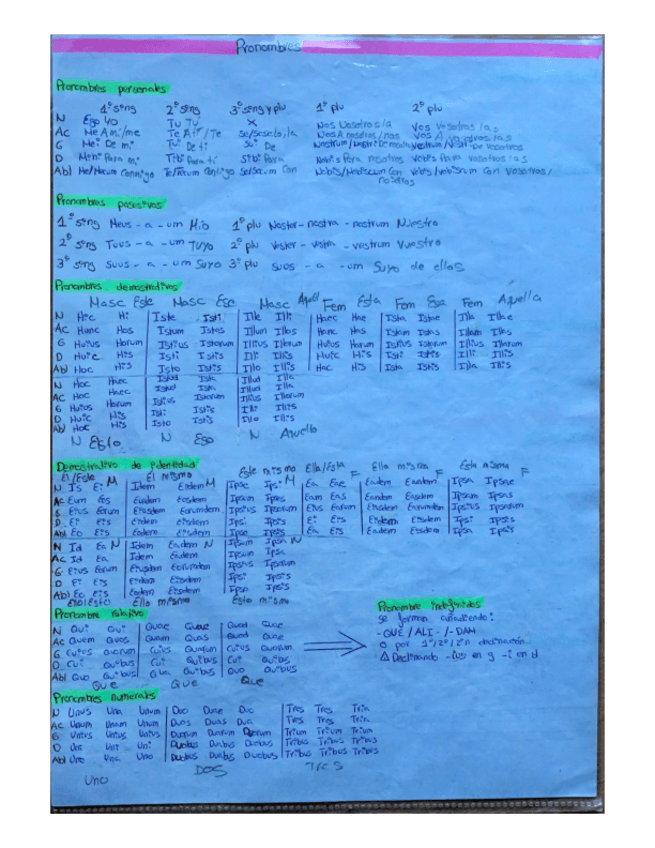 Pronombres
Pronombres personales
1º sing 2º sing 3º sing y plu 1º plu 2º plu
N Ego Yo Tu Tú X Nos Nosotros/a Vos Vosotros/as
Ac Me A mi/me Te A ti/Te Se/sese Nos A nosotros/nos Vos A vosotros/as
G Mei De mi Tui De ti Sui De Nostrum/Nostri De Vestrum/Vestri De vosotros
D Mihi Para mi Tibi Para ti Sibi Para Nobis Para nosotros Vobis Para vosotros/as
Abl Me/Mecum Conmigo Te/Tecum Contigo Se/Secum Con Nobis/Nobiscum Con nosotros Vobis/Vobiscum Con vosotros/
Pronombres posesivos
1º sing Meus - a - um Mio 1º plu Noster - nostra - nostrum Nuestro
2º sing Tuus - a - um Tuyo 2º plu Vester - vestra - vestrum Vuestro
3º sing Suus - a - um Suyo 3º plu Suos - a - um Suyo de ellos
Pronombres demostrativos
Masc Este Masc Ese Masc Aquel Fem Esta Fem Esa Fem Aquella
N Hic Hi Iste Isti Ille Illi Haec Hae Ista Istae Illa Illae
Ac Hunc Hos Istum Istos Illum Illos Hanc Has Istam Istas Illam Illas
G Huius Horum Istius Istorum Illius Illorum Huius Harum Istius Istarum Illius Illarum
D Huic His Isti Istis Illi Illis Huic His Isti Istis Illi Illis
Abl Hoc His Isto Istis Illo Illis Hac His Ista Istis Illa Illis
N Hoc Haec Istud Ista Illud Illa
Ac Hoc Haec Istud Ista Illud Illa
G Huius Horum Istius Istorum Illius Illorum
D Huic His Isti Istis Illi Illis
Abl Hoc His Isto Istis Illo Illis
N Esto N Eso N Aquello
Demostrativo de identidad
El/Este M El mismo M Este mismo Ella/Esta F Ella misma F Esta misma F
N Is Ei Idem Eidem Ipse Ipsi Ea Eae Eadem Eaedem Ipsa Ipsae
Ac Eum Eos Eundem Eosdem Ipsum Ipsos Eam Eas Eandem Easdem Ipsam Ipsas
G Eius Eorum Eiusdem Eorumdem Ipsius Ipsorum Eius Earum Eiusdem Earumdem Ipsius Ipsarum
D Ei Eis Eidem Eisdem Ipsi Ipsis Ei Eis Eidem Eisdem Ipsi Ipsis
Abl Eo Eis Eodem Eisdem Ipso Ipsis Ea Eis Eadem Eisdem Ipsa Ipsis
N Id Ea N Idem Eadem N Ipsum Ipsa N
Ac Id Ea Idem Eadem Ipsum Ipsa
G Eius Eorum Eiusdem Eorumdem Ipsius Ipsorum
D Ei Eis Eidem Eisdem Ipsi Ipsis
Abl Eo Eis Eodem Eisdem Ipso Ipsis
Ello/Esto Ello mismo Esto mismo
Pronombre relativo
N Qui Qui Quae Quae Quod Quae
Ac Quem Quos Quam Quas Quod Quae
G Cuius Quorum Cuius Quarum Cuius Quorum
D Cui Quibus Cui Quibus Cui Quibus
Abl Quo Quibus Qua Quibus Quo Quibus
Que Que Que
Pronombre indefinidos
se forman añadiendo:
- QUE / ALI - / - DAM
o por 1º/2º/2n declinación
Δ Declinando -ius en g -i en d
Pronombres numerales
N Unus Una Unum Duo Duae Duo Tres Tres Tria
Ac Unum Unam Unum Duos Duas Duo Tres Tres Tria
G Unius Unius Unius Duorum Duarum Duorum Trium Trium Trium
D Uni Uni Uni Duobus Duabus Duobus Tribus Tribus Tribus
Abl Uno Una Uno Duobus Duabus Duobus Tribus Tribus Tribus
Uno DOS TRES